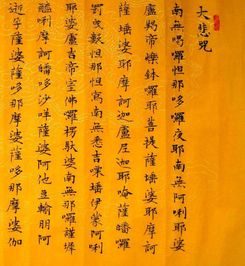 大悲咒
南無喝囉怛那哆囉夜耶南無阿唎耶婆
盧羯帝爍鉢囉耶菩提薩埵婆耶摩訶
薩埵婆耶摩訶迦盧尼迦耶唵薩皤囉
罰曳數怛那怛寫南無悉吉㗚埵伊蒙阿唎
耶婆盧吉帝室佛囉楞馱婆南無那囉謹墀
醯唎摩訶皤哆沙咩薩婆阿他豆輸朋阿
逝孕薩婆薩哆那摩婆薩哆那摩婆伽